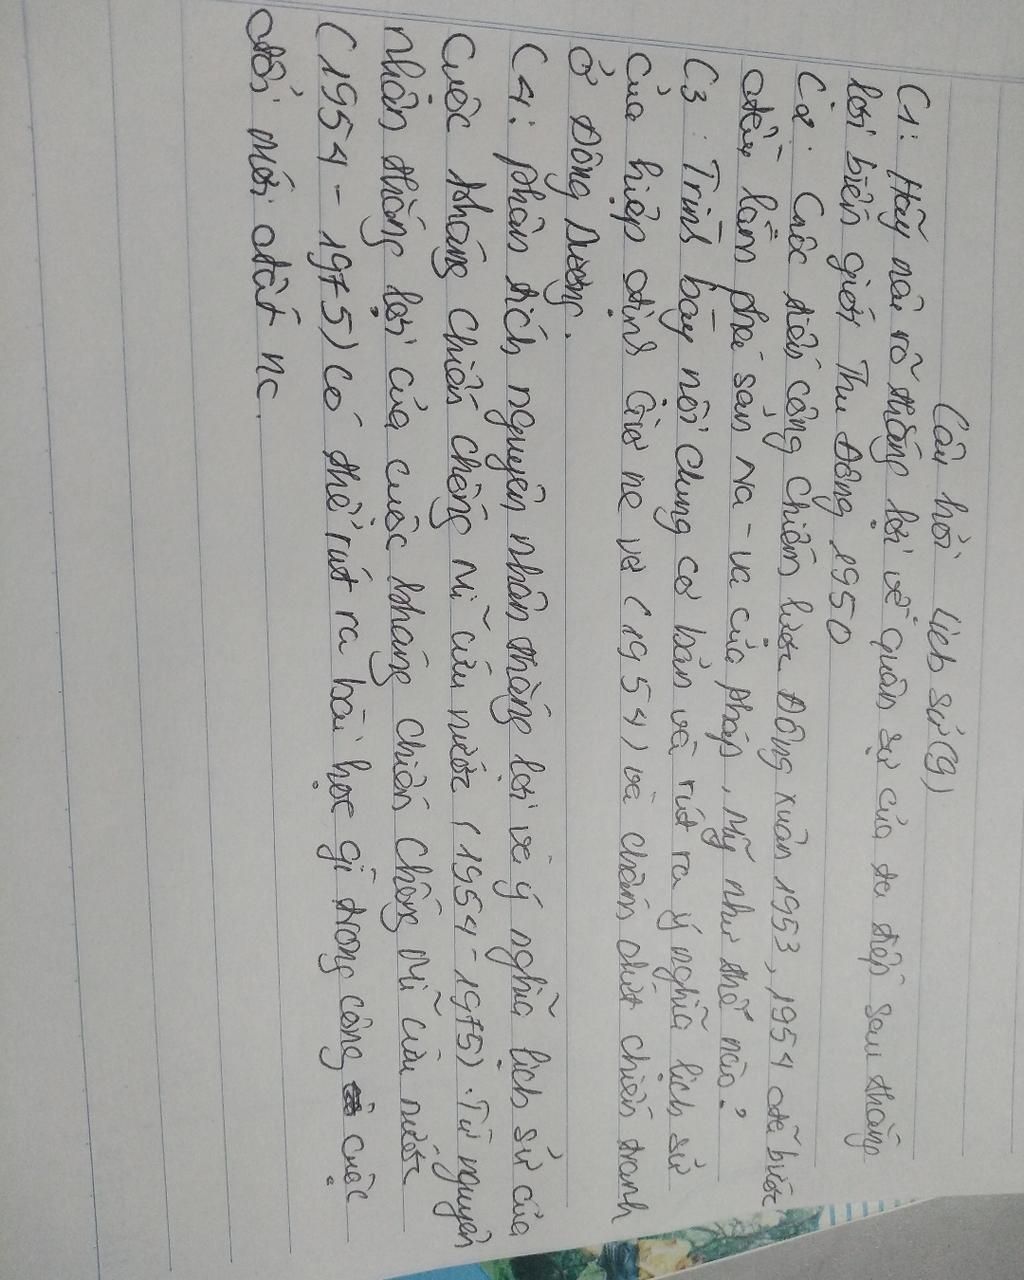 Câu hỏi lịch sử (9)
C1: Hãy nêu rõ thắng lợi về quân sự của ta tiếp sau thắng
lợi biên giới Thu Đông 1950
C2: Cuộc tiến công chiến lược Đông xuân 1953, 1954 đã bước
đầu làm phá sản Na-va của pháp, Mỹ như thế nào?
C3: Trình bày nội dung cơ bản và rút ra ý nghĩa lịch sử
của hiệp định Giơ ne vơ (1954) về chấm dứt chiến tranh
ở Đông Dương.
C4: phân tích nguyên nhân thắng lợi và ý nghĩa lịch sử của
cuộc kháng chiến chống Mĩ cứu nước (1954-1975). Từ nguyên
nhân thắng lợi của cuộc kháng chiến chống Mĩ cứu nước
(1954-1975) có thể rút ra bài học gì trong công cuộc
đổi mới đất nc.